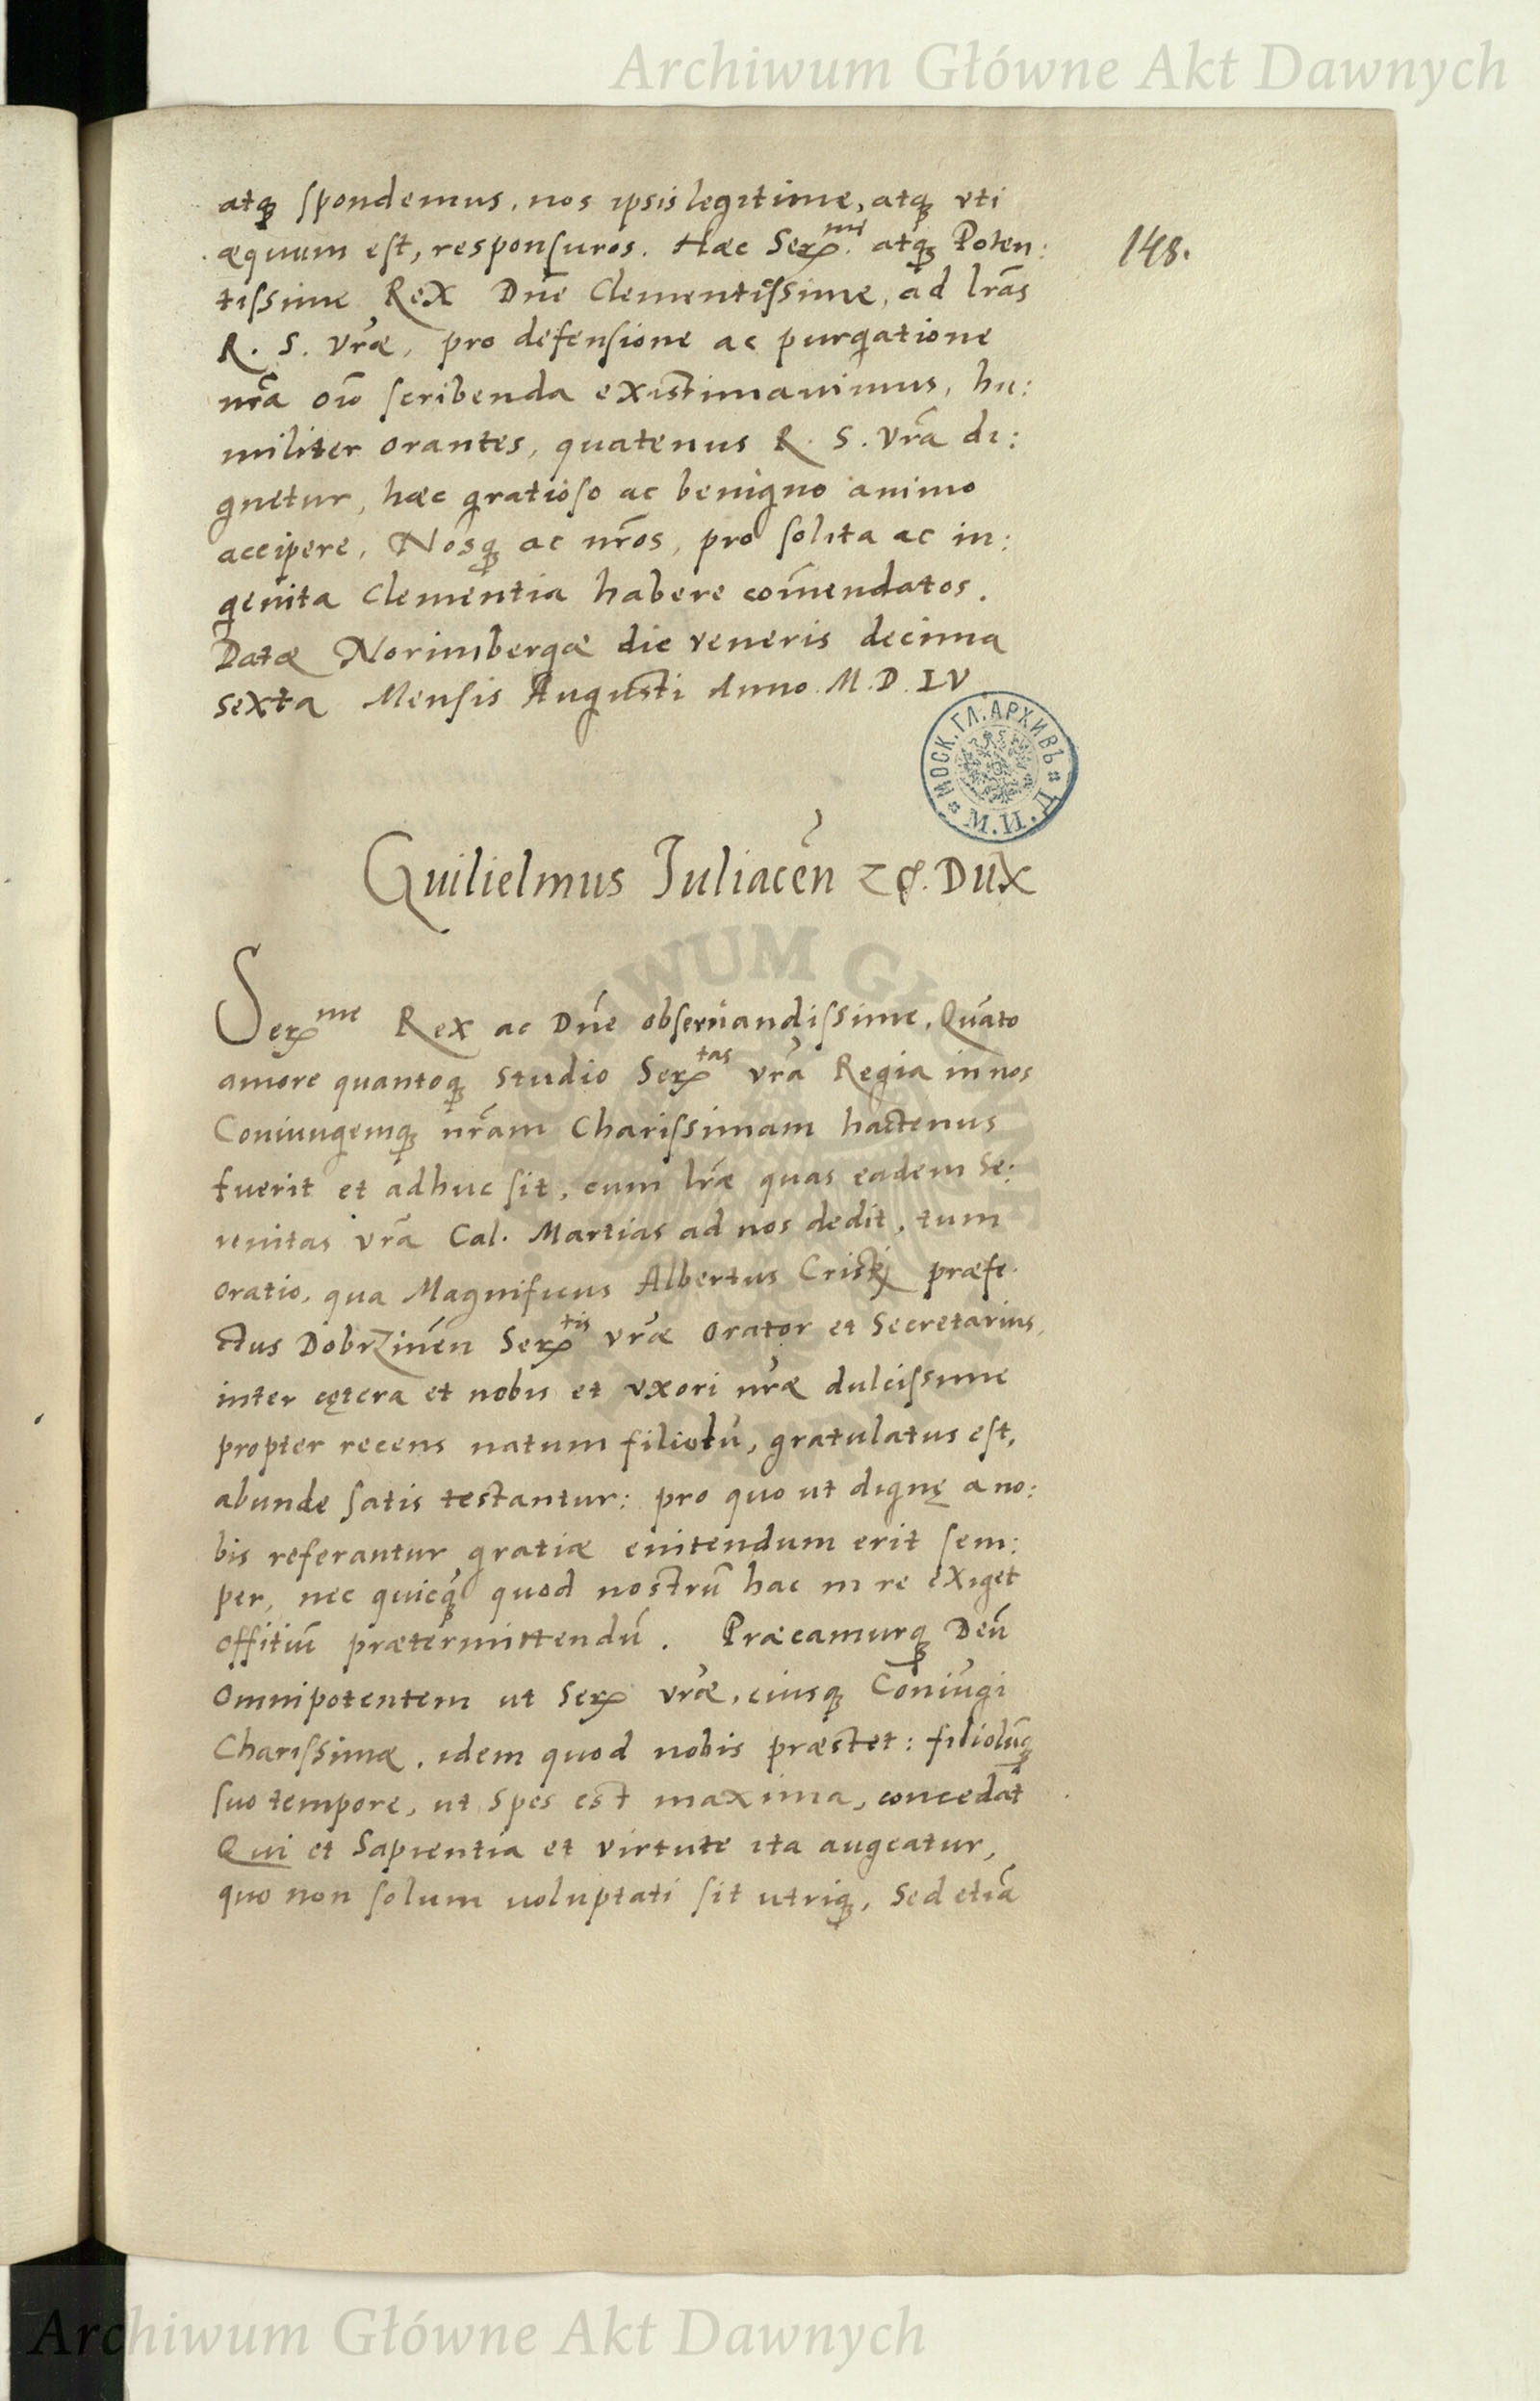 Archiwum Główne Akt Dawnych
148.
atq̃ spondemus, nos ipsis legitime, atq̃ vti
æquum est, responsuros. Hæc Ser.mi atq̃ Poten:
tissime Rex Dñe Clementissime, ad lr̃as
R. S. Vr̃æ, pro defensione ac purgatione
nr̃a scribenda existimauimus, hu:
militer orantes, quatenus R. S. Vr̃a di:
gnetur, hæc gratioso ac benigno animo
accipere, Nosq̃ ac nr̃os, pro solita ac in:
genita Clementia habere com̃endatos.
Datæ Norimbergæ die veneris decima
sexta Mensis Augusti Anno. M. D. LV
МОСК. ГЛ. АРХИВЪ М. И. Д.
Guilielmus Iuliaceñ Dux
Ser.me Rex ac Dñe obseruandissime, Quãto
amore quantoq̃ studio Ser.tas vr̃a Regia in nos
Coniungemq̃ nr̃am Charissimam hactenus
fuerit et adhuc sit, cum lr̃æ quas eadem Se:
renitas vr̃a Cal. Martias ad nos dedit, tum
oratio, qua Magnificus Albertus præfe
ctus Dobrzineñ Ser.tis vr̃æ orator et Secretarius,
inter cętera et nobis et vxori nr̃æ dulcissime
propter recens natum filiolũ, gratulatus est,
abunde satis testantur: pro quo ut dignę a no:
bis referantur gratiæ enitendum erit sem:
per, nec quicq̃ quod nostrũ hac in re exiget
offitiũ prætermittendũ. Præcamurq̃ Deũ
Omnipotentem ut Ser. vr̃æ, eiusq̃ Coniugi
Charissimæ, idem quod nobis præstet: filiolũq̃
suo tempore, ut spes est maxima, concedat
Qui et Sapientia et virtute ita augeatur,
quo non solum uoluptati sit utriq̃, Sed etiã
Archiwum Główne Akt Dawnych